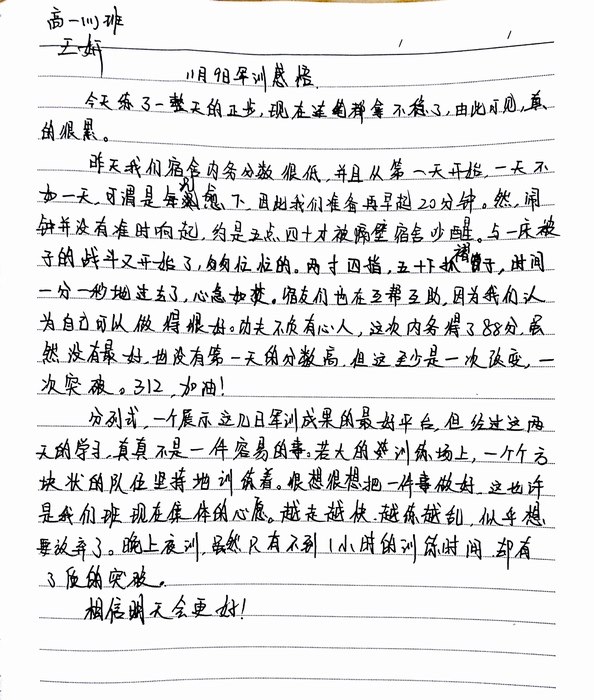 高一(11)班
王妍
11月9日军训感悟
今天练了一整天的正步,现在连笔都拿不稳了,由此可见,真
的很累。
昨天我们宿舍内务分数很低,并且从第一天开始,一天不
如一天,可谓是每况愈下,因此我们准备再早起20分钟。然,闹
钟并没有准时响起,约是五点四十才被隔壁宿舍吵醒。与一床被
子的战斗又开始了,匆匆忙忙的。两寸四指,五十下抓褶子,时间
一分一秒地过去了,心急如焚。宿友们也在互帮互助,因为我们认
为自己可以做得很好。功夫不负有心人,这次内务得了88分,虽
然没有最好,也没有第一天的分数高,但这至少是一次改变,一
次突破。312,加油!
分列式,一个展示这几日军训成果的最好平台,但经过这两
天的学习,真真不是一件容易的事。若大的训练场上,一个个方
块状的队伍坚持地训练着。很想很想把一件事做好,这也许
是我们班现在集体的心愿。越走越快,越练越乱,似乎想
要放弃了。晚上夜训,虽然只有不到1小时的训练时间,却有
了质的突破。
相信明天会更好!